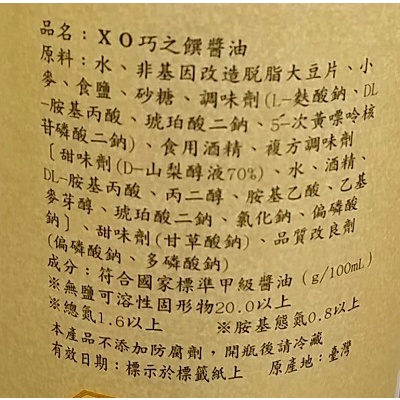 品名：ＸＯ巧之饌醬油
原料：水、非基因改造脱脂大豆片、小
麥、食鹽、砂糖、調味劑(L-麩酸鈉、DL
-胺基丙酸、琥珀酸二鈉、5-次黃嘌呤核
苷磷酸二鈉)、食用酒精、複方調味劑
〔甜味劑(D-山梨醇液70%)、水、酒精、
DL-胺基丙酸、丙二醇、胺基乙酸、乙基
麥芽醇、琥珀酸二鈉、氯化鈉、偏磷酸
鈉〕、甜味劑(甘草酸鈉)、品質改良劑
(偏磷酸鈉、多磷酸鈉)
成分：符合國家標準甲級醬油（g/100mL）
※無鹽可溶性固形物20.0以上
※總氮1.6以上　※胺基態氮0.8以上
本產品不添加防腐劑，開瓶後請冷藏
有效日期：標示於標籤紙上　原產地：臺灣